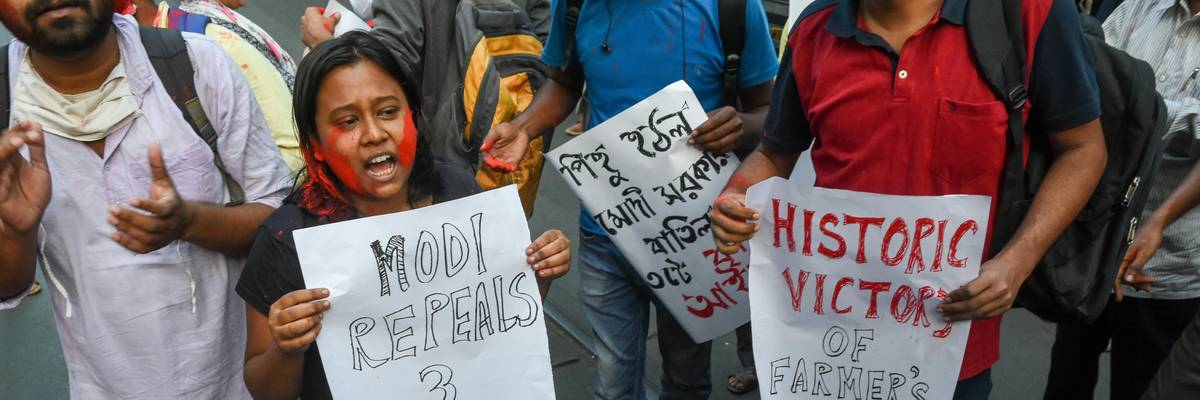 MODI
REPEALS
3
পিছু হঠল
মোদী সরকার
বাতিল
৩টে
HISTORIC
VICTORY
OF
FARMER'S